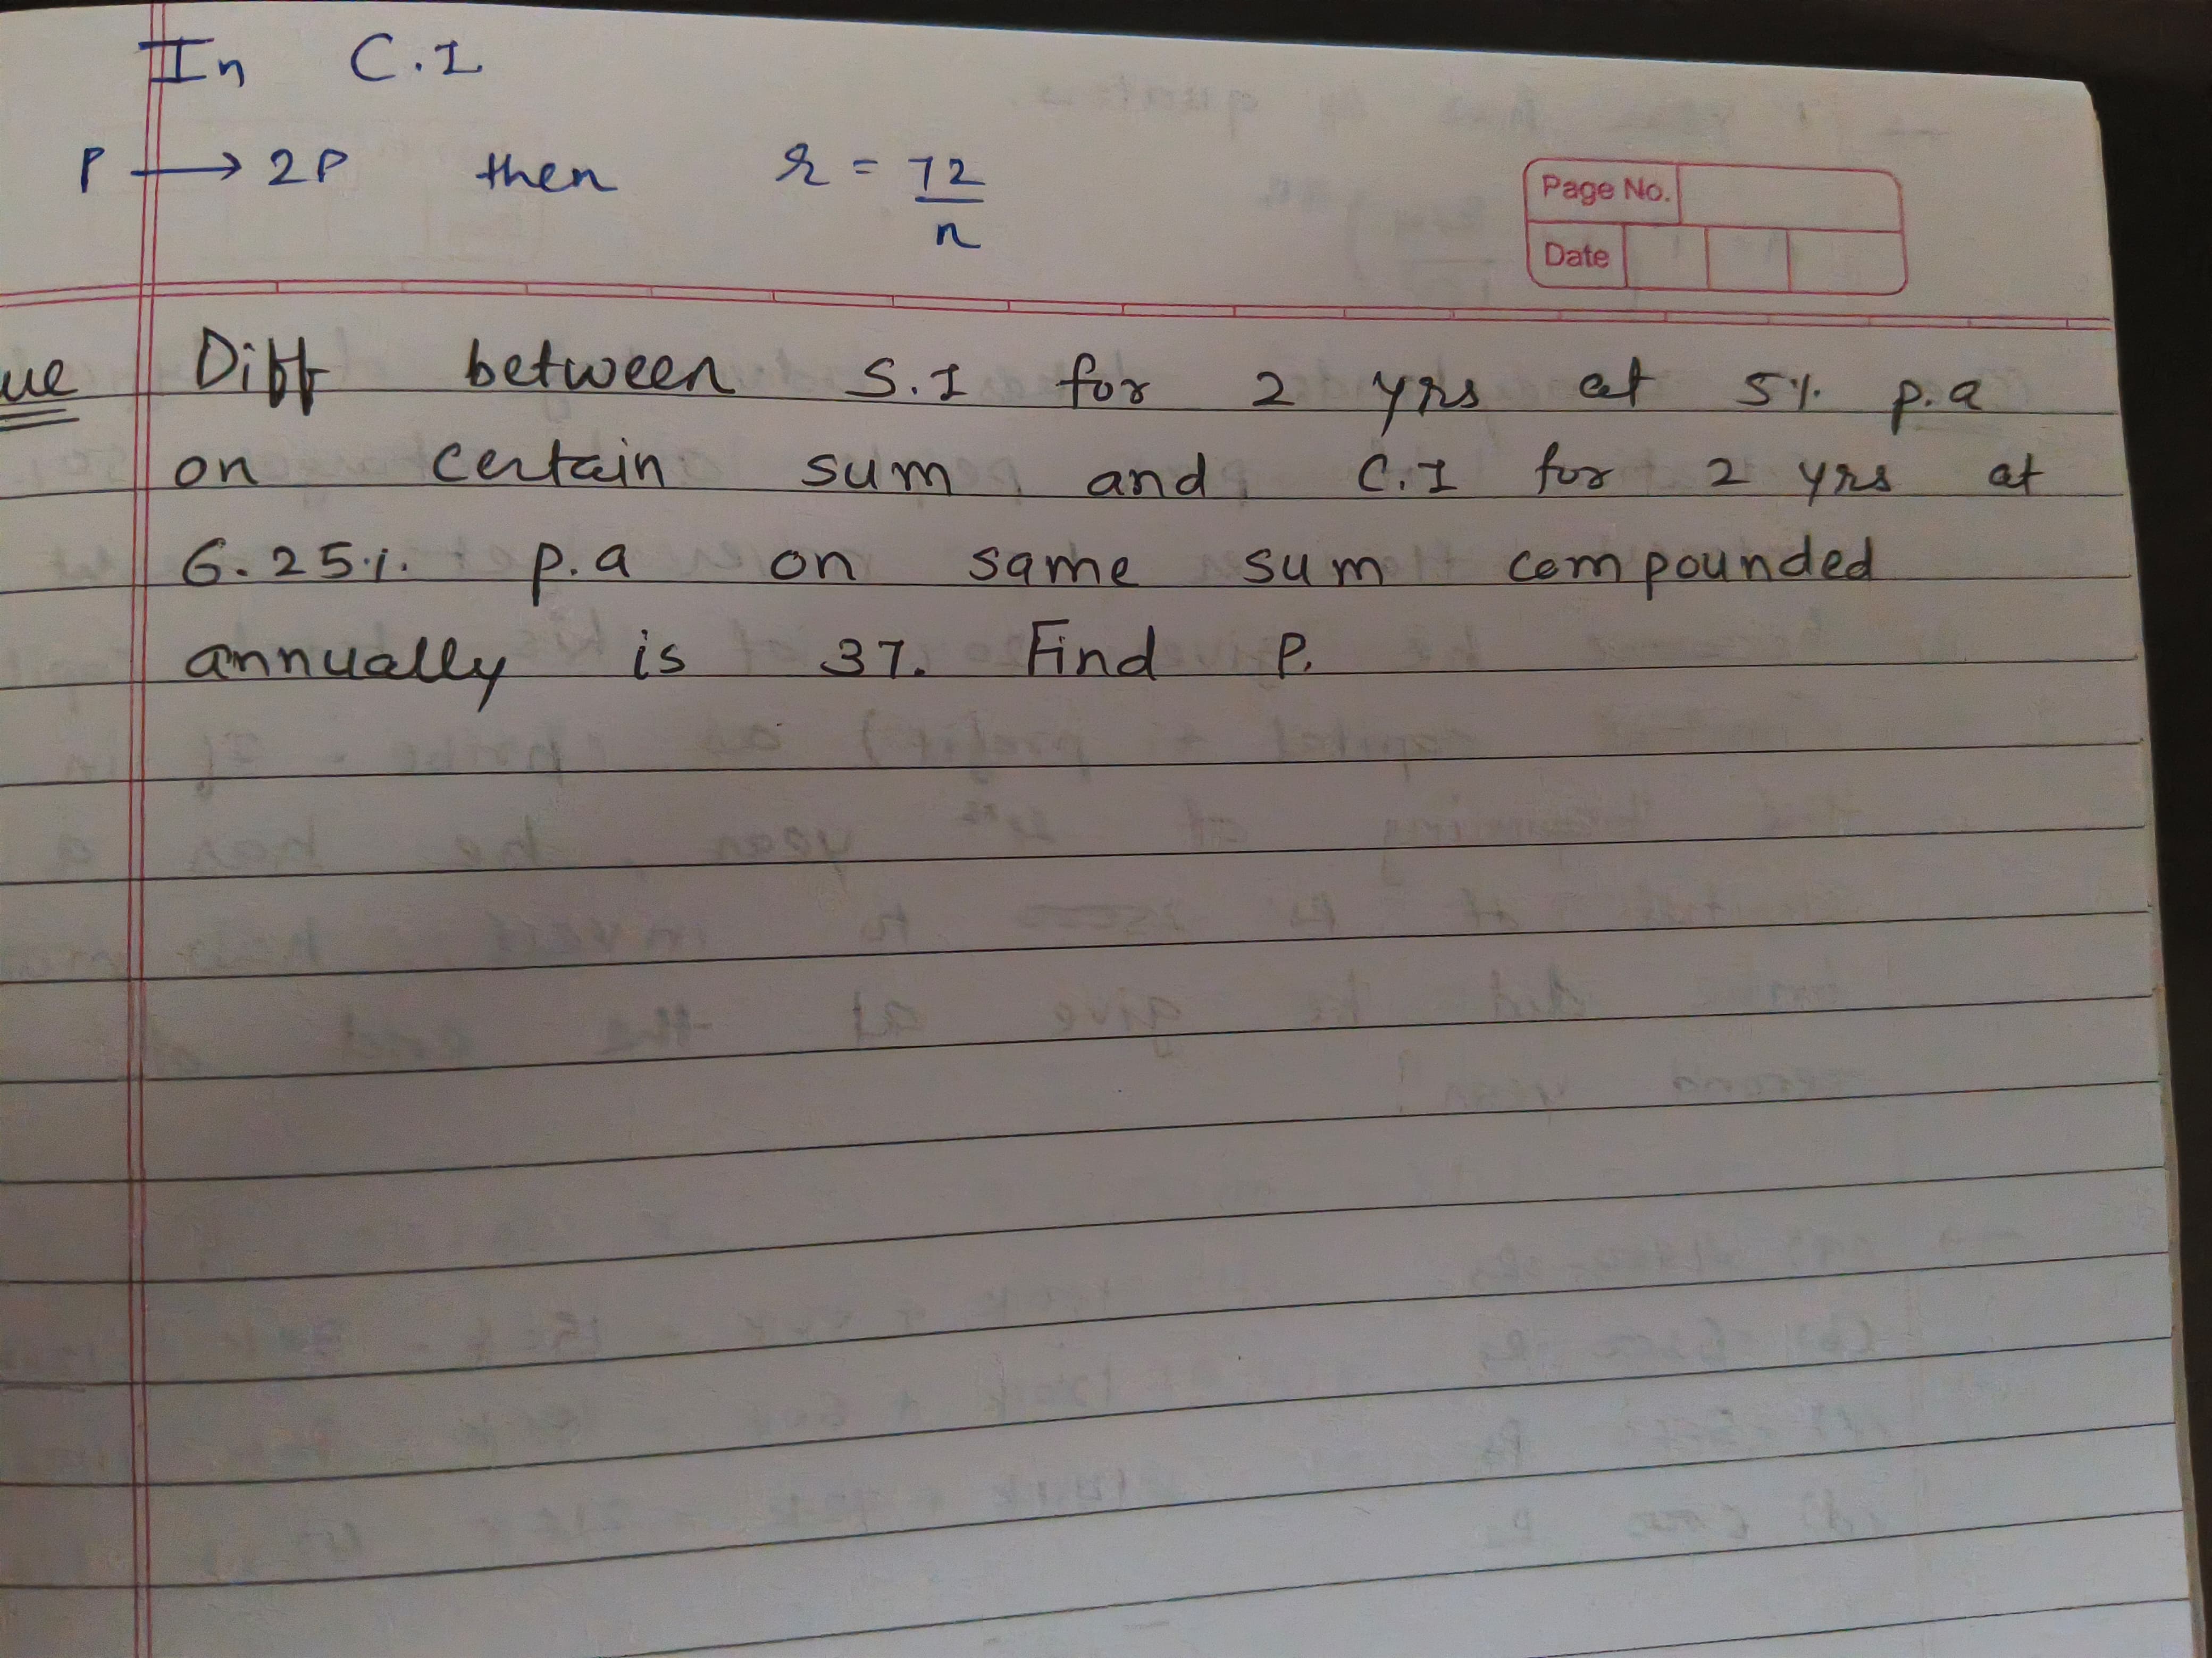 In C.I
P → 2P then r = 72/n
Page No.
Date
ue Diff between S.I for 2 yrs at 5% p.a
on certain sum and C.I for 2 yrs at
6.25% p.a on same sum compounded
annually is 37. Find P.